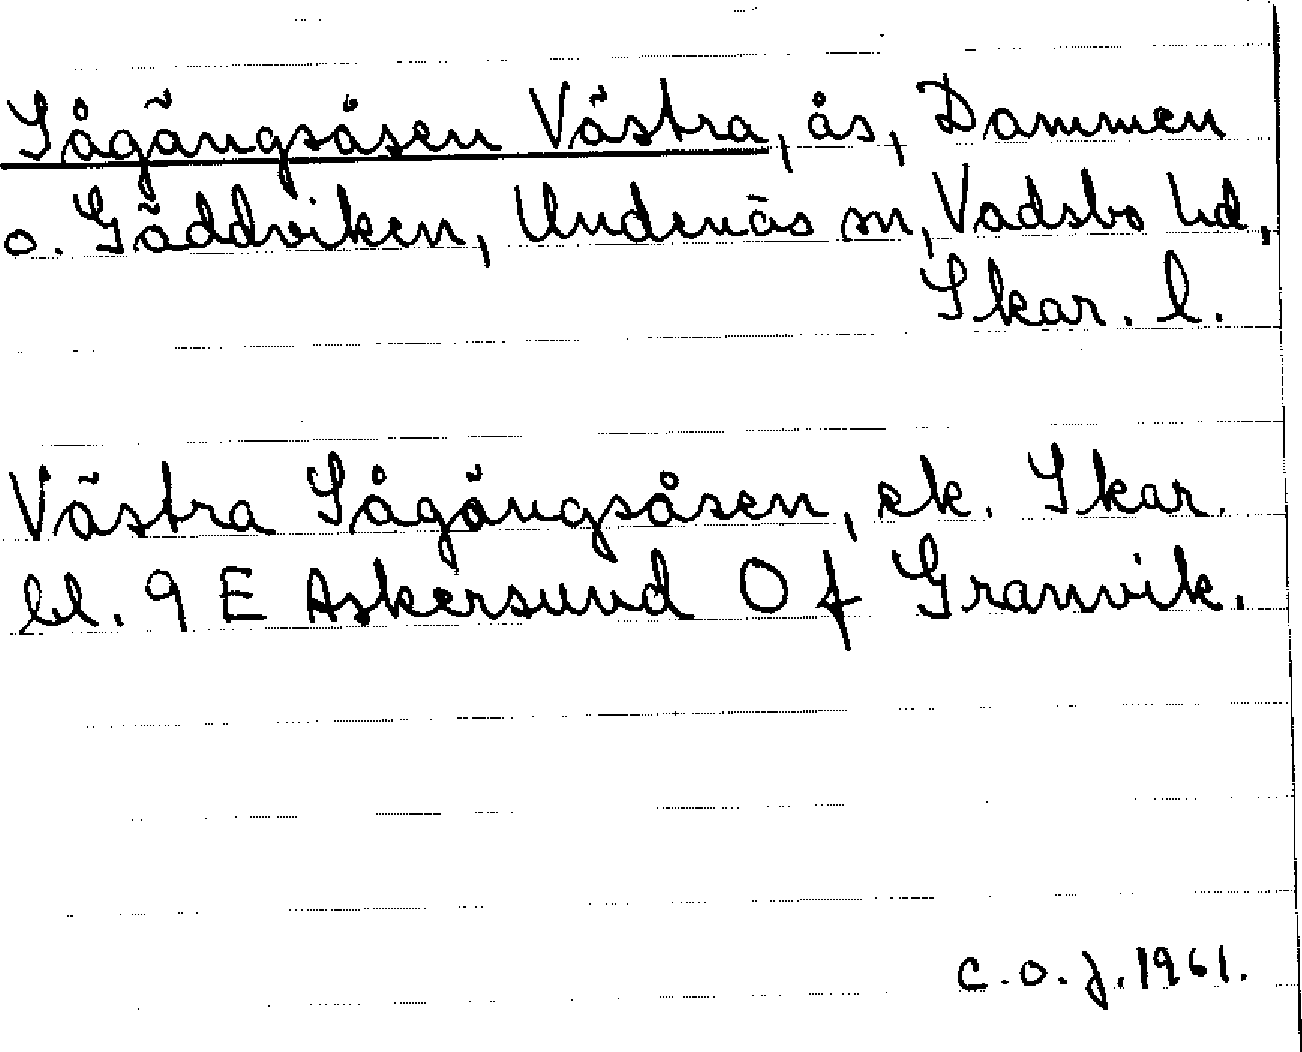 Sågängsåsen Västra, ås, Dammen
o. Gäddviken, Undenäs sn, Vadsbo hd,
Skar. l.
Västra Sågängsåsen, ek. Skar.
bl. 9 E Askersund O f Granvik.
C.O.J. 1961.